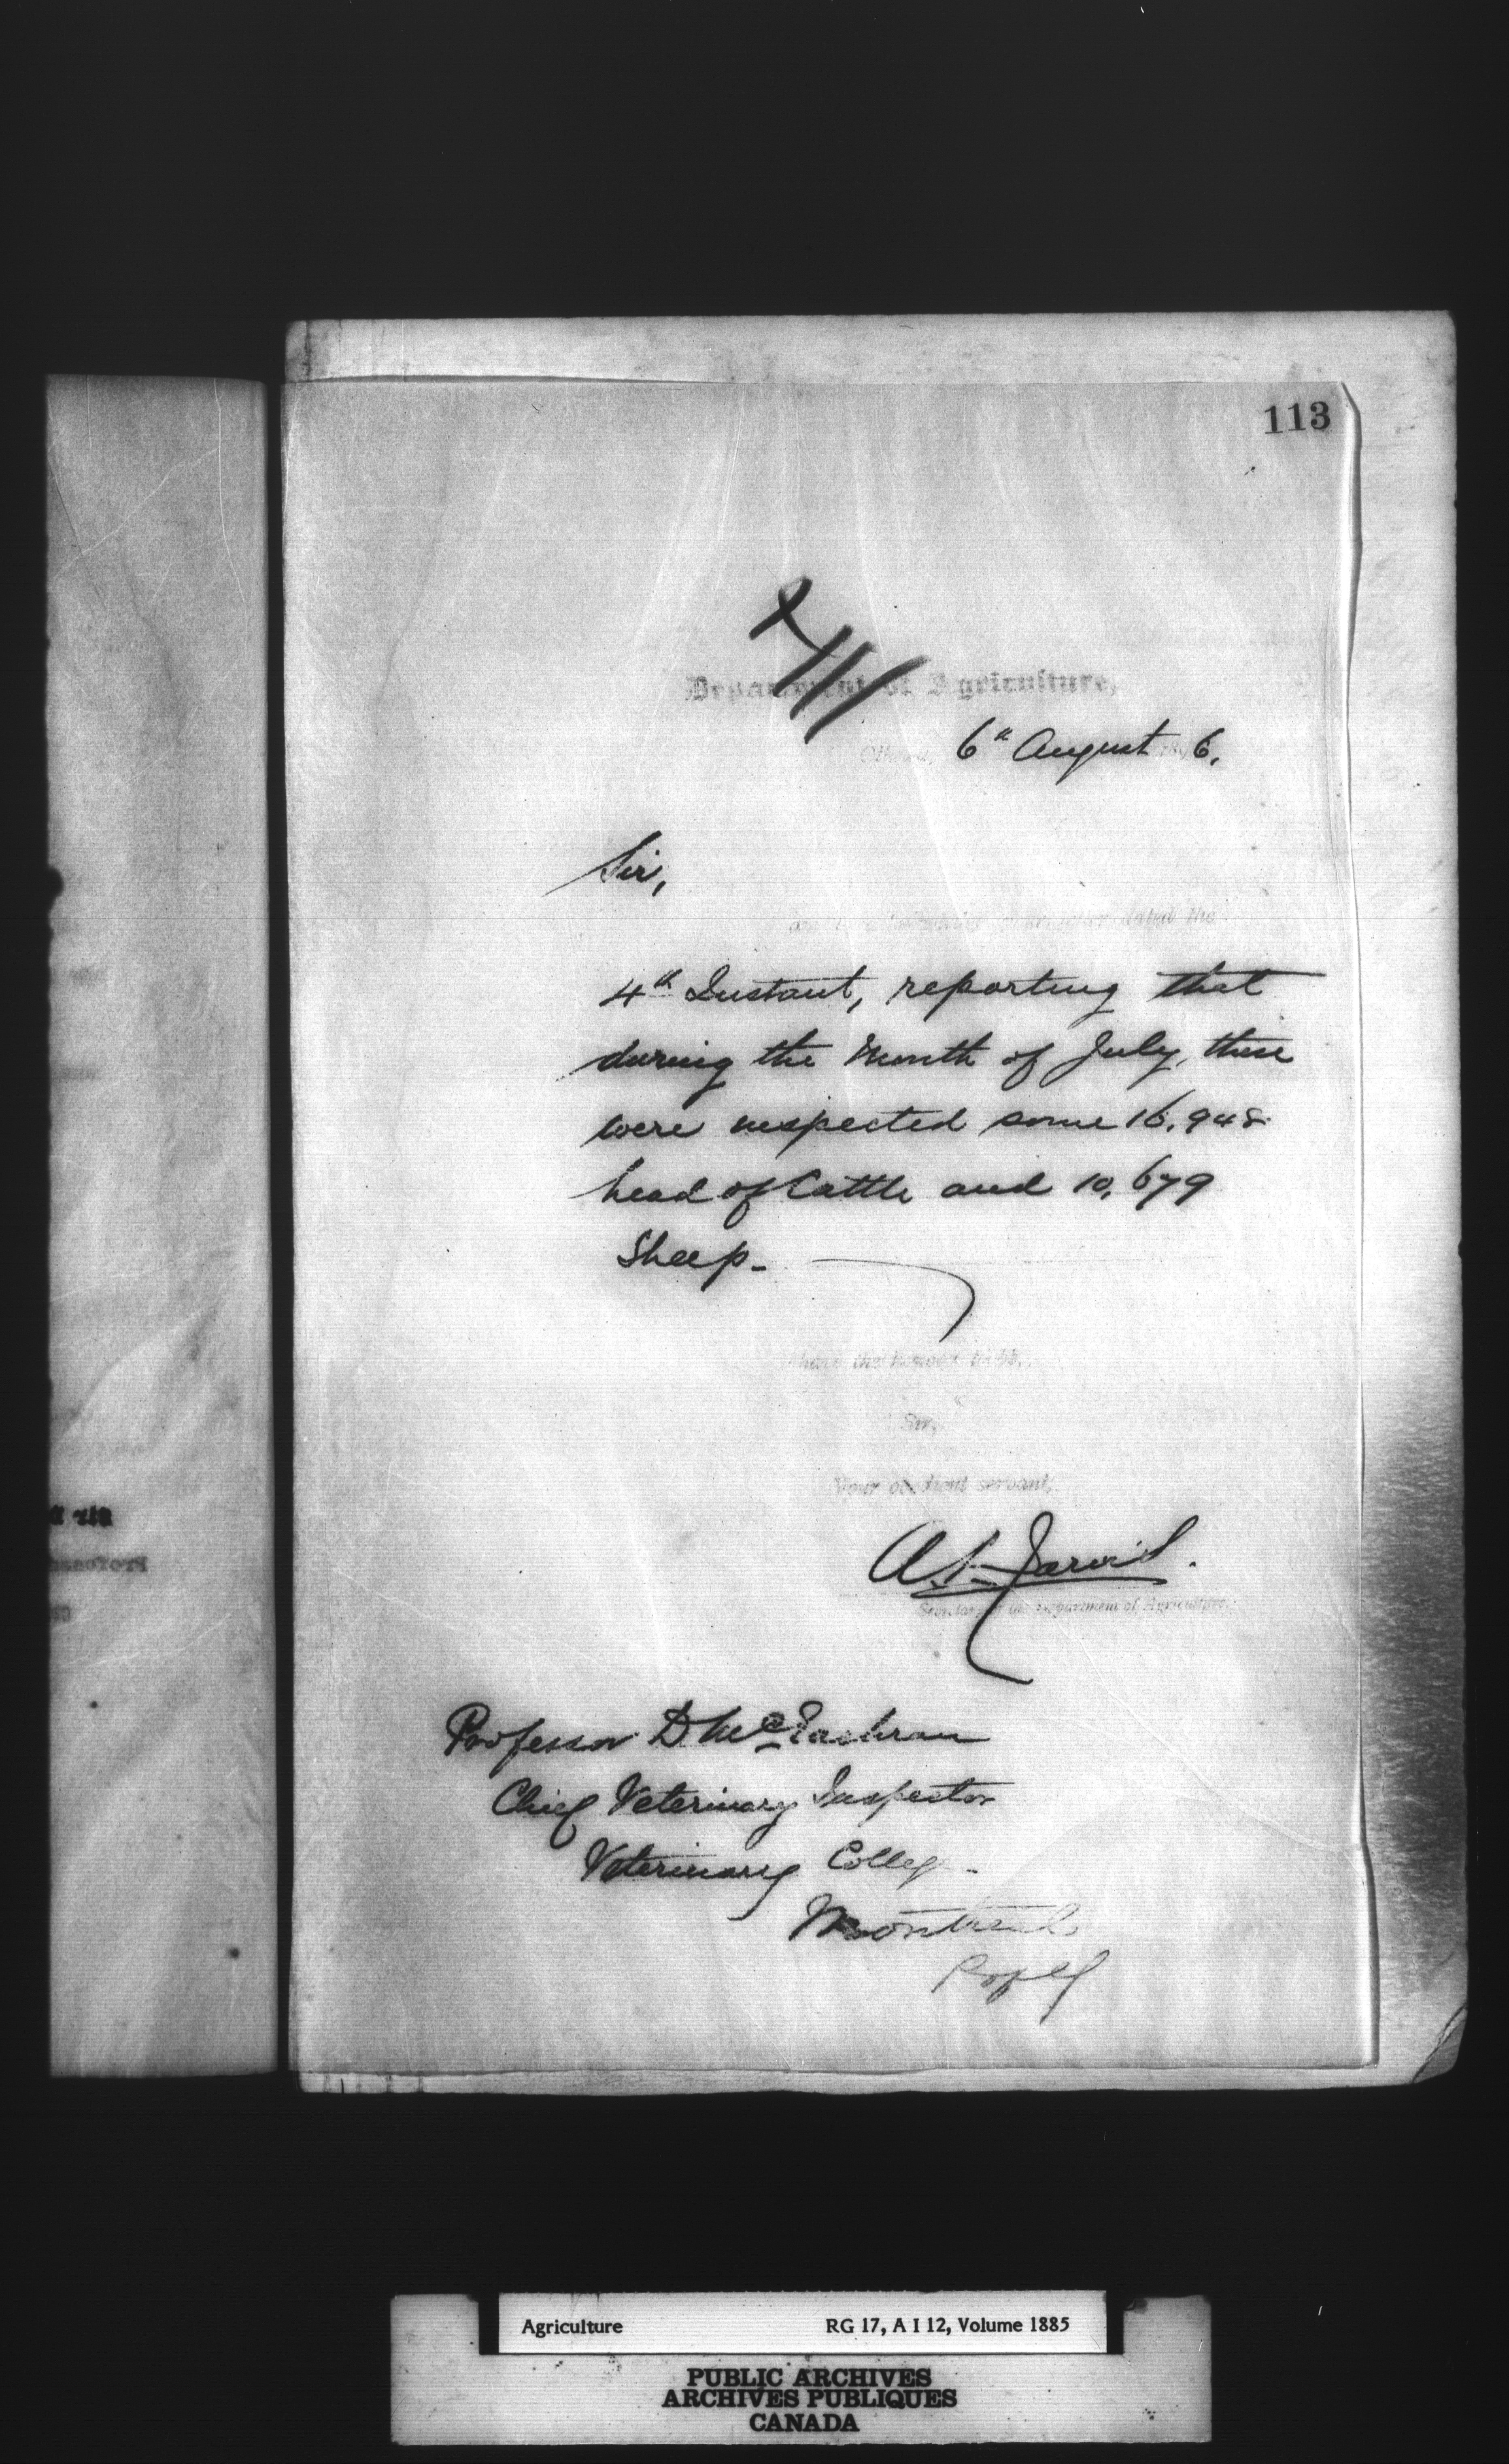 113
Department of Agriculture,
Ottawa, 6th August 6.
Sir,
dated the
4th Instant, reporting that
during the Month of July, there
were inspected some 16,948
head of Cattle and 10,679
Sheep -
Sir,
Your obedient servant,
Secretary of the Department of Agriculture.
Professor D McEachran
Chief Veterinary Inspector
Veterinary College
Montreal
Agriculture RG 17, A I 12, Volume 1885
PUBLIC ARCHIVES
ARCHIVES PUBLIQUES
CANADA